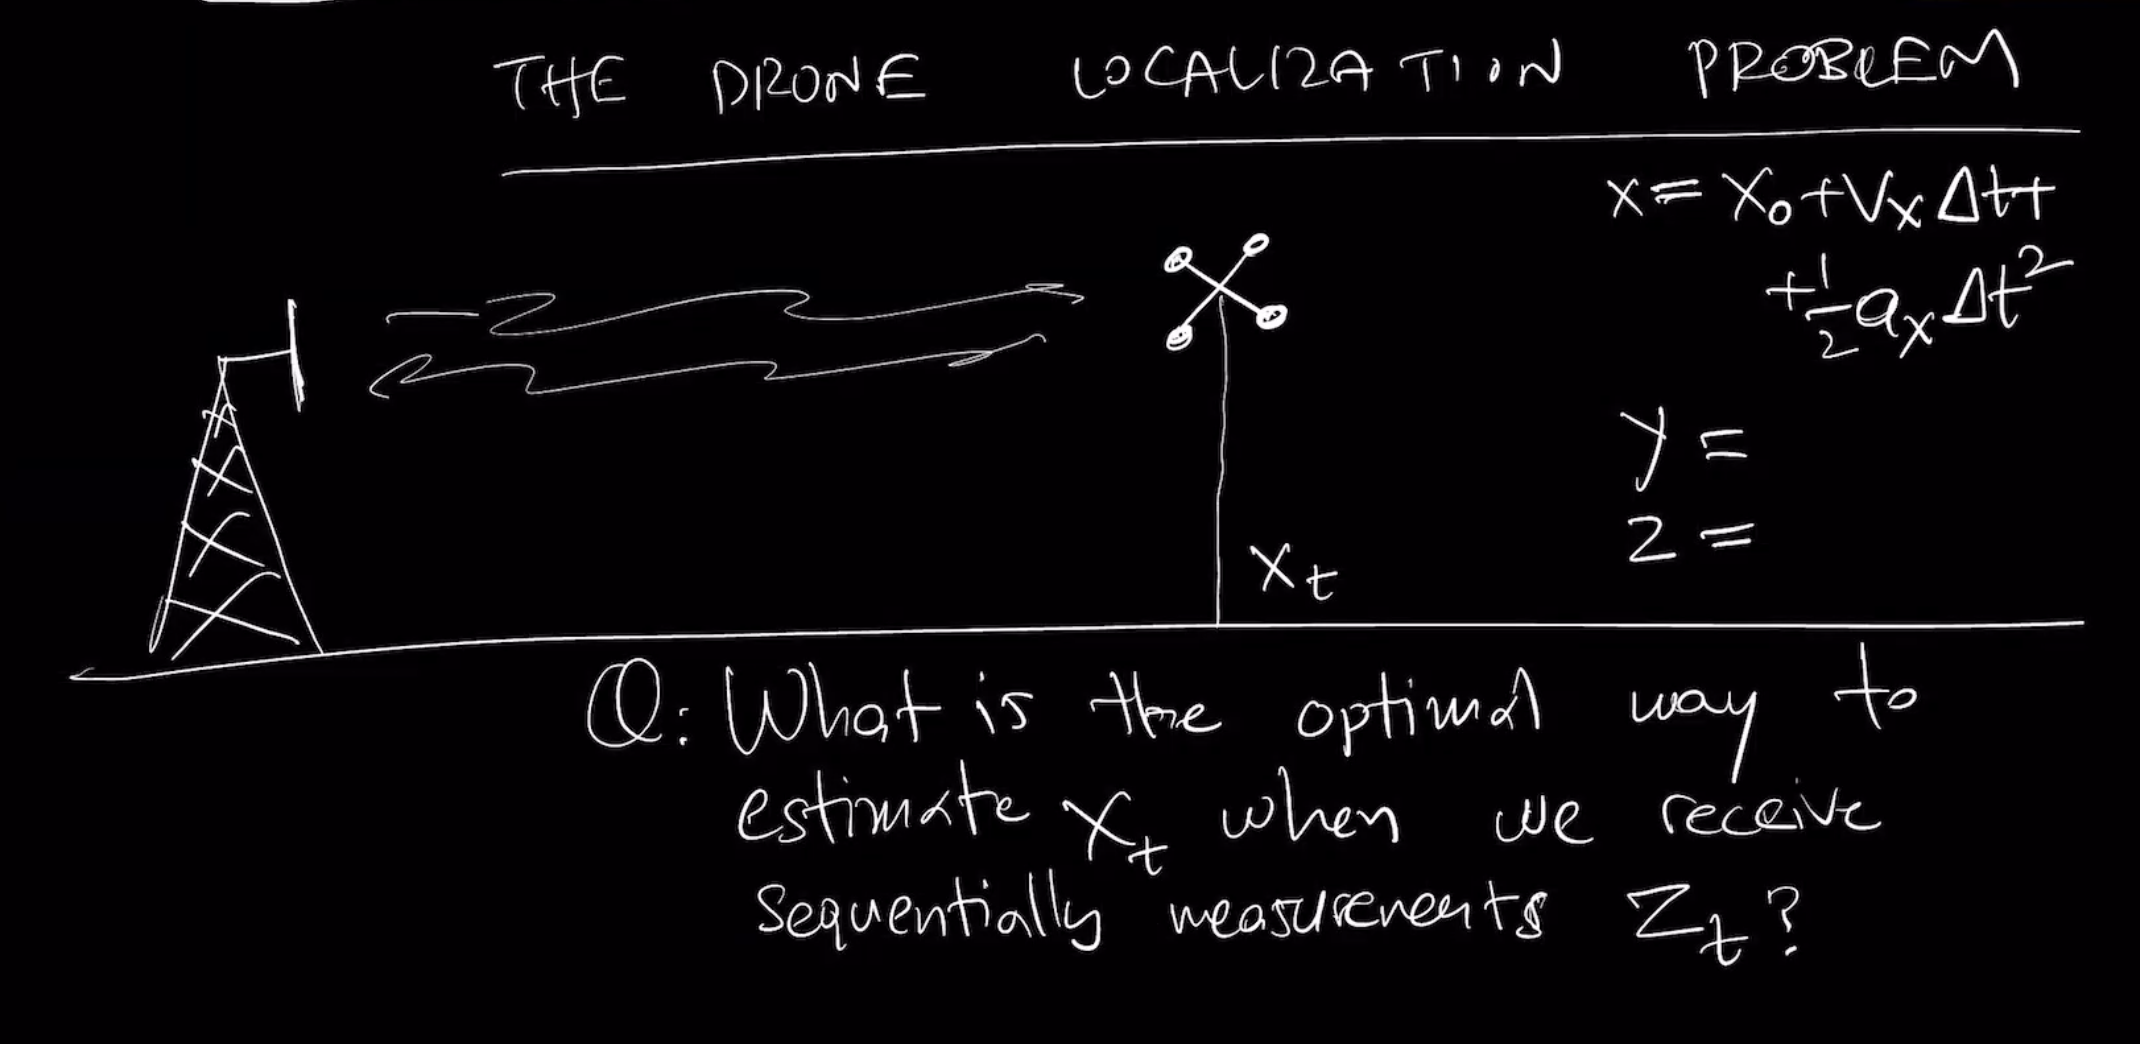 THE DRONE LOCALIZATION PROBLEM
x = x₀ + Vx Δt +
+ 1/2 ax Δt²
y =
z =
Xt
Q: What is the optimal way to
estimate Xt when we receive
sequentially measurements Zt?